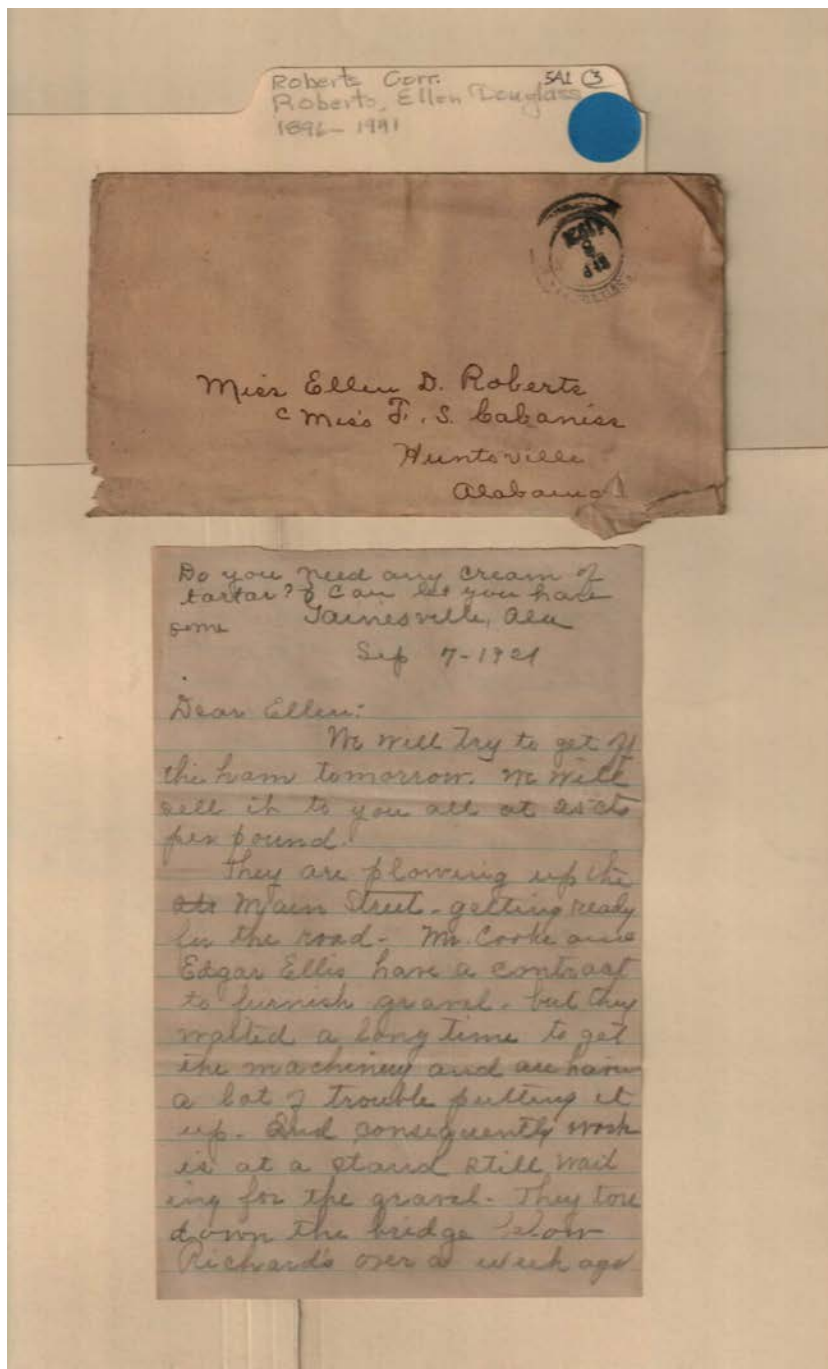 Roberts Corr. 5A1 C3
Roberts, Ellen Douglass
1896-1991
SEP
8
Miss Ellen D. Roberts
c Miss F. S. Cabaniss
Huntsville
Alabama
Do you need any cream of
tartar? I can let you have
some Gainesville, Ala
Sep 7-1921
Dear Ellen:
We will try to get off
the ham tomorrow. We will
sell it to you all at 25 cts
per pound.
They are plowing up the
Main Street - getting ready
for the road - Mr. Cooke and
Edgar Ellis have a contract
to furnish gravel - but they
waited a long time to get
the machinery and are havin
a lot of trouble putting it
up - And consequently work
is at a stand still wait
ing for the gravel - They tore
down the bridge below
Richards over a week ago